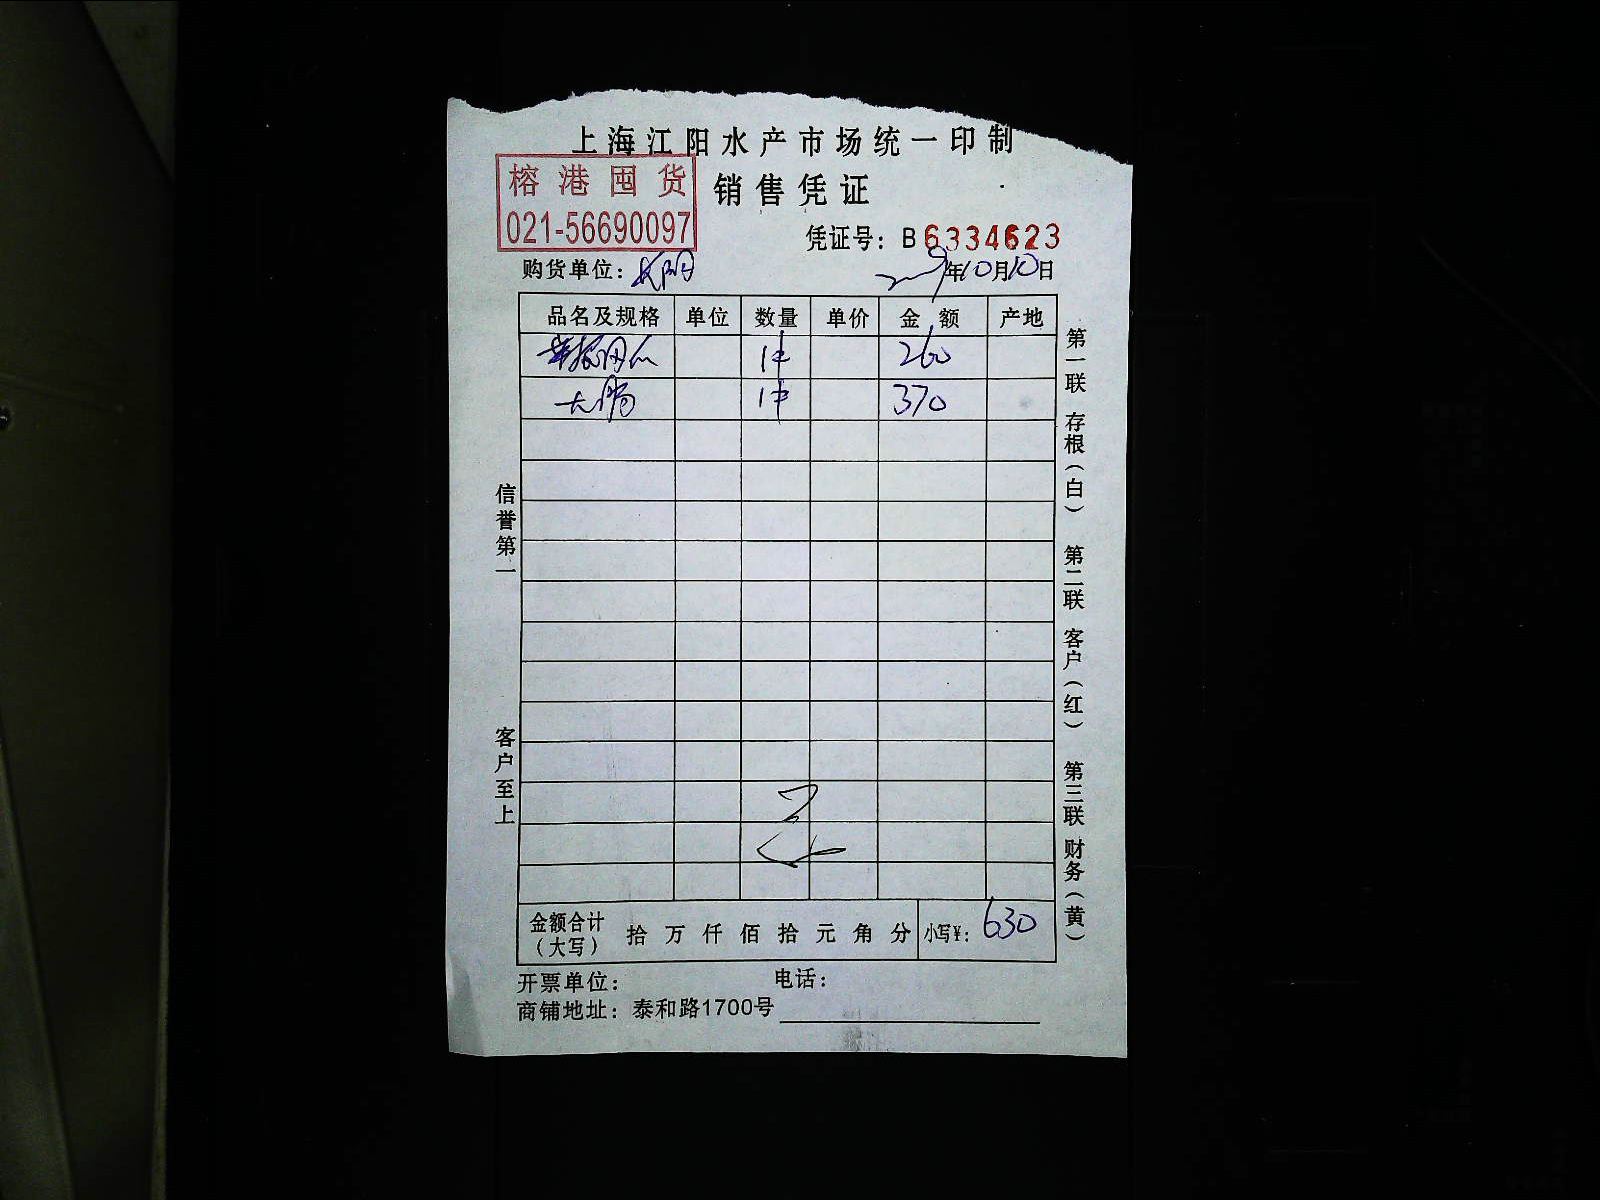 上海江阳水产市场统一印制
榕港囤货
021-56690097
销售凭证
凭证号：B6334623
购货单位：
年10月10日
品名及规格 单位 数量 单价 金额 产地
1件 260
大肠 1件 370
信誉第一
客户至上
第一联 存根（白） 第二联 客户（红） 第三联 财务（黄）
金额合计（大写） 拾万仟佰拾元角分 小写¥：630
开票单位： 电话：
商铺地址：泰和路1700号